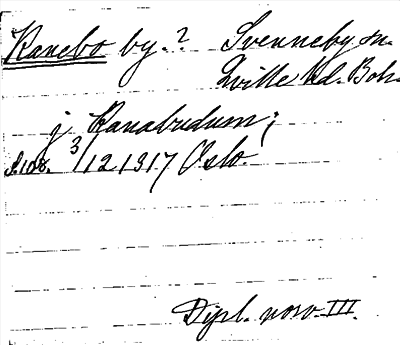 Ranebo by.? Svenneby sn.
Qville hd. Boh.
j Ranabudum;
s. 108. 3/12 1317 Oslo.
Dipl. norv. III.